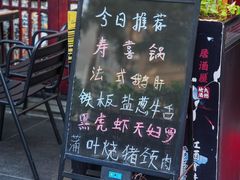 今日推荐
寿喜锅
法式鹅肝
铁板盐葱牛舌
黑虎虾天妇罗
蒲叶烧猪颈肉
居酒屋